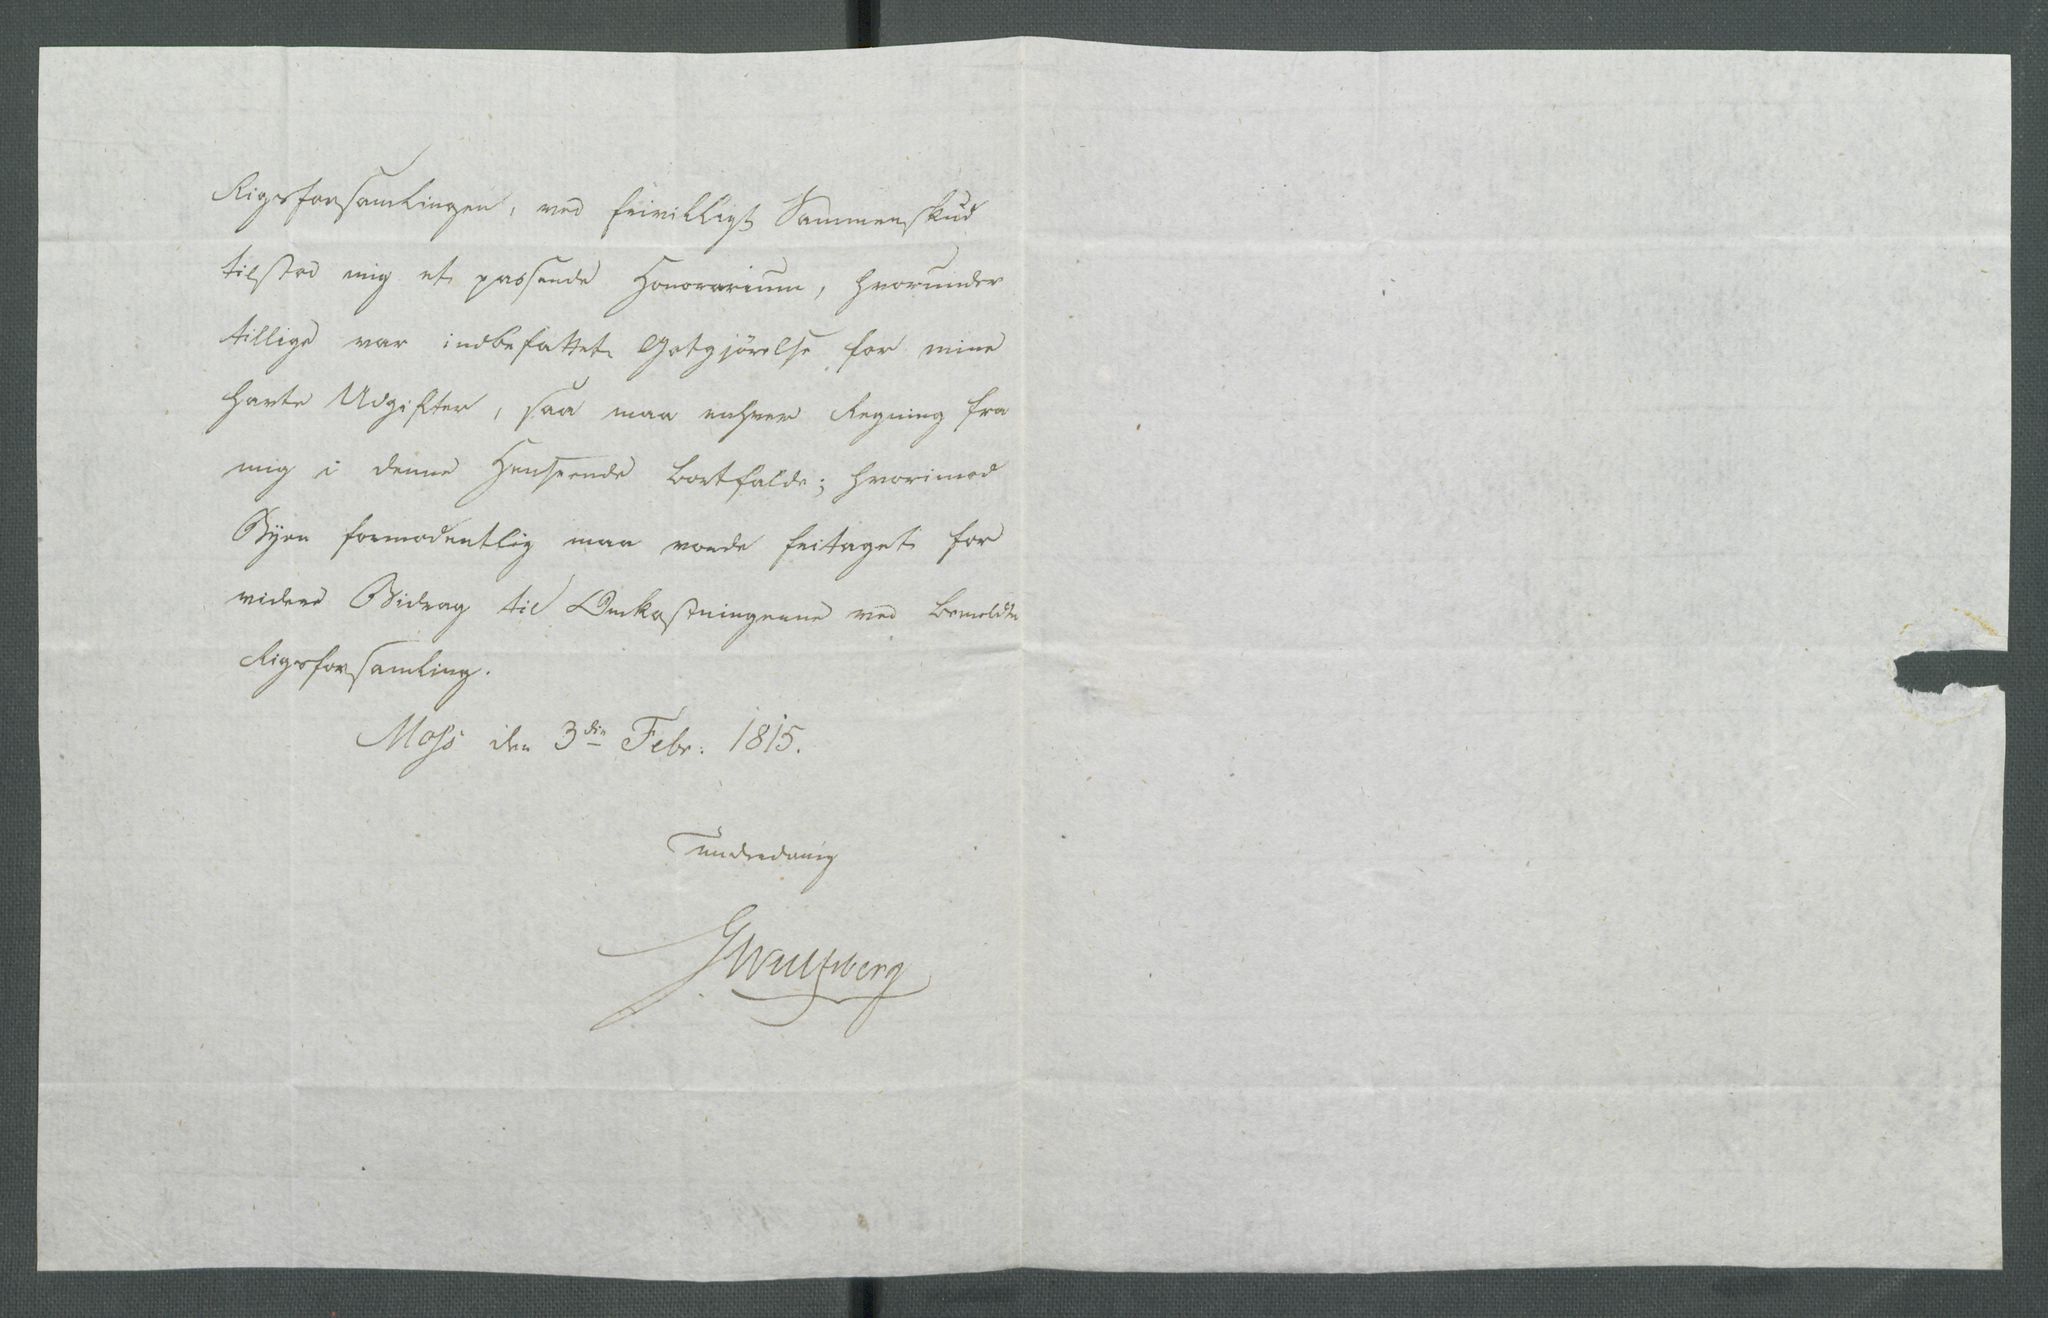 Rigsforsamlingen, ved frivilligt Sammenskud
tilstod mig et passende Honorarium, hvorunder
tillige var indbefattet Godtgjörelse for mine
havte Udgifter, saa maa enhver Regning fra
mig i denne Henseende bortfalde; hvorimod
Byen formodentlig maa vorde fritaget for
videre Bidrag til Omkostningerne ved bemeldte
Rigsforsamling.
Moss den 3die Febr. 1815.
underdanig
GWulfsberg